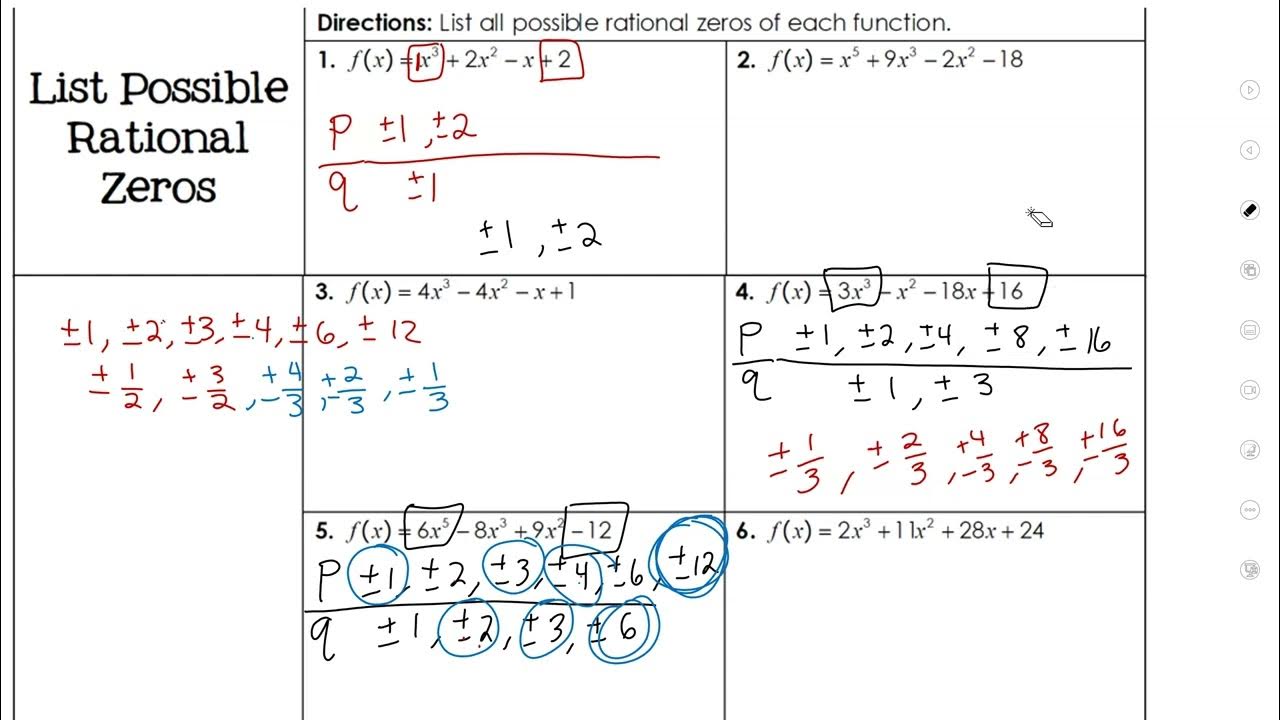 List Possible
Rational
Zeros
Directions: List all possible rational zeros of each function.
1. f(x) = 1x³ + 2x² − x + 2
P ±1, ±2
q ±1
±1, ±2
2. f(x) = x⁵ + 9x³ − 2x² − 18
3. f(x) = 4x³ − 4x² − x + 1
±1, ±2, ±3, ±4, ±6, ±12
±1/2, ±3/2, ±4/3, ±2/3, ±1/3
4. f(x) = 3x³ − x² − 18x + 16
P ±1, ±2, ±4, ±8, ±16
q ±1, ±3
±1/3, ±2/3, ±4/3, ±8/3, ±16/3
5. f(x) = 6x⁵ − 8x³ + 9x² − 12
P ±1, ±2, ±3, ±4, ±6, ±12
q ±1, ±2, ±3, ±6
6. f(x) = 2x³ + 11x² + 28x + 24